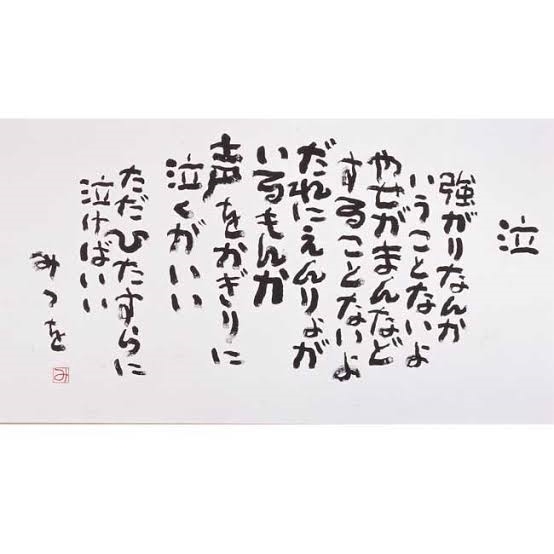 泣
強がりなんか
いうことないよ
やせがまんなど
することないよ
だれにえんりょが
いるもんか
声をかぎりに
泣くがいい
ただひたすらに
泣けばいい
みつを
み